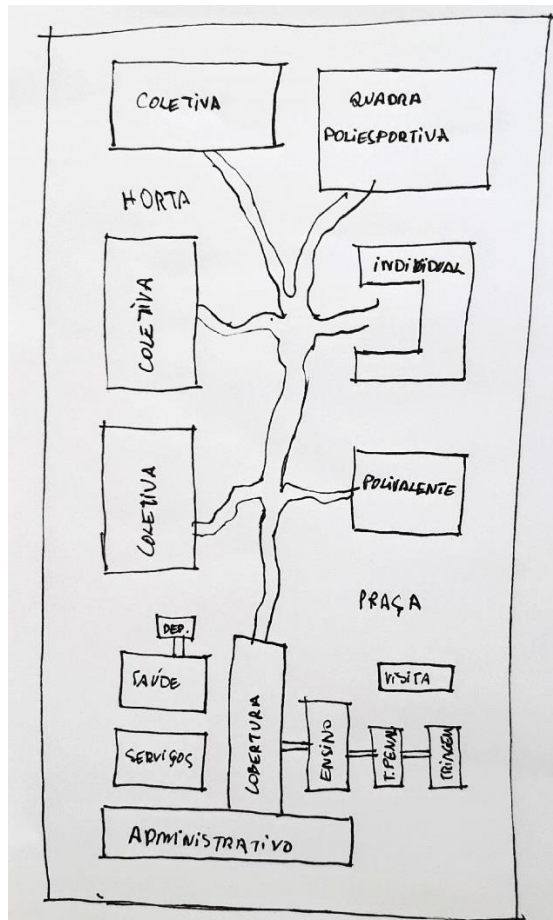 COLETIVA
QUADRA
POLIESPORTIVA
HORTA
INDIBIDUAL
COLETIVA
COLETIVA
POLIVALENTE
PRAÇA
DEP.
SAÚDE
VISITA
SERVIÇOS
COBERTURA
ENSINO
T. PENAL
TRIAGEM
ADMINISTRATIVO